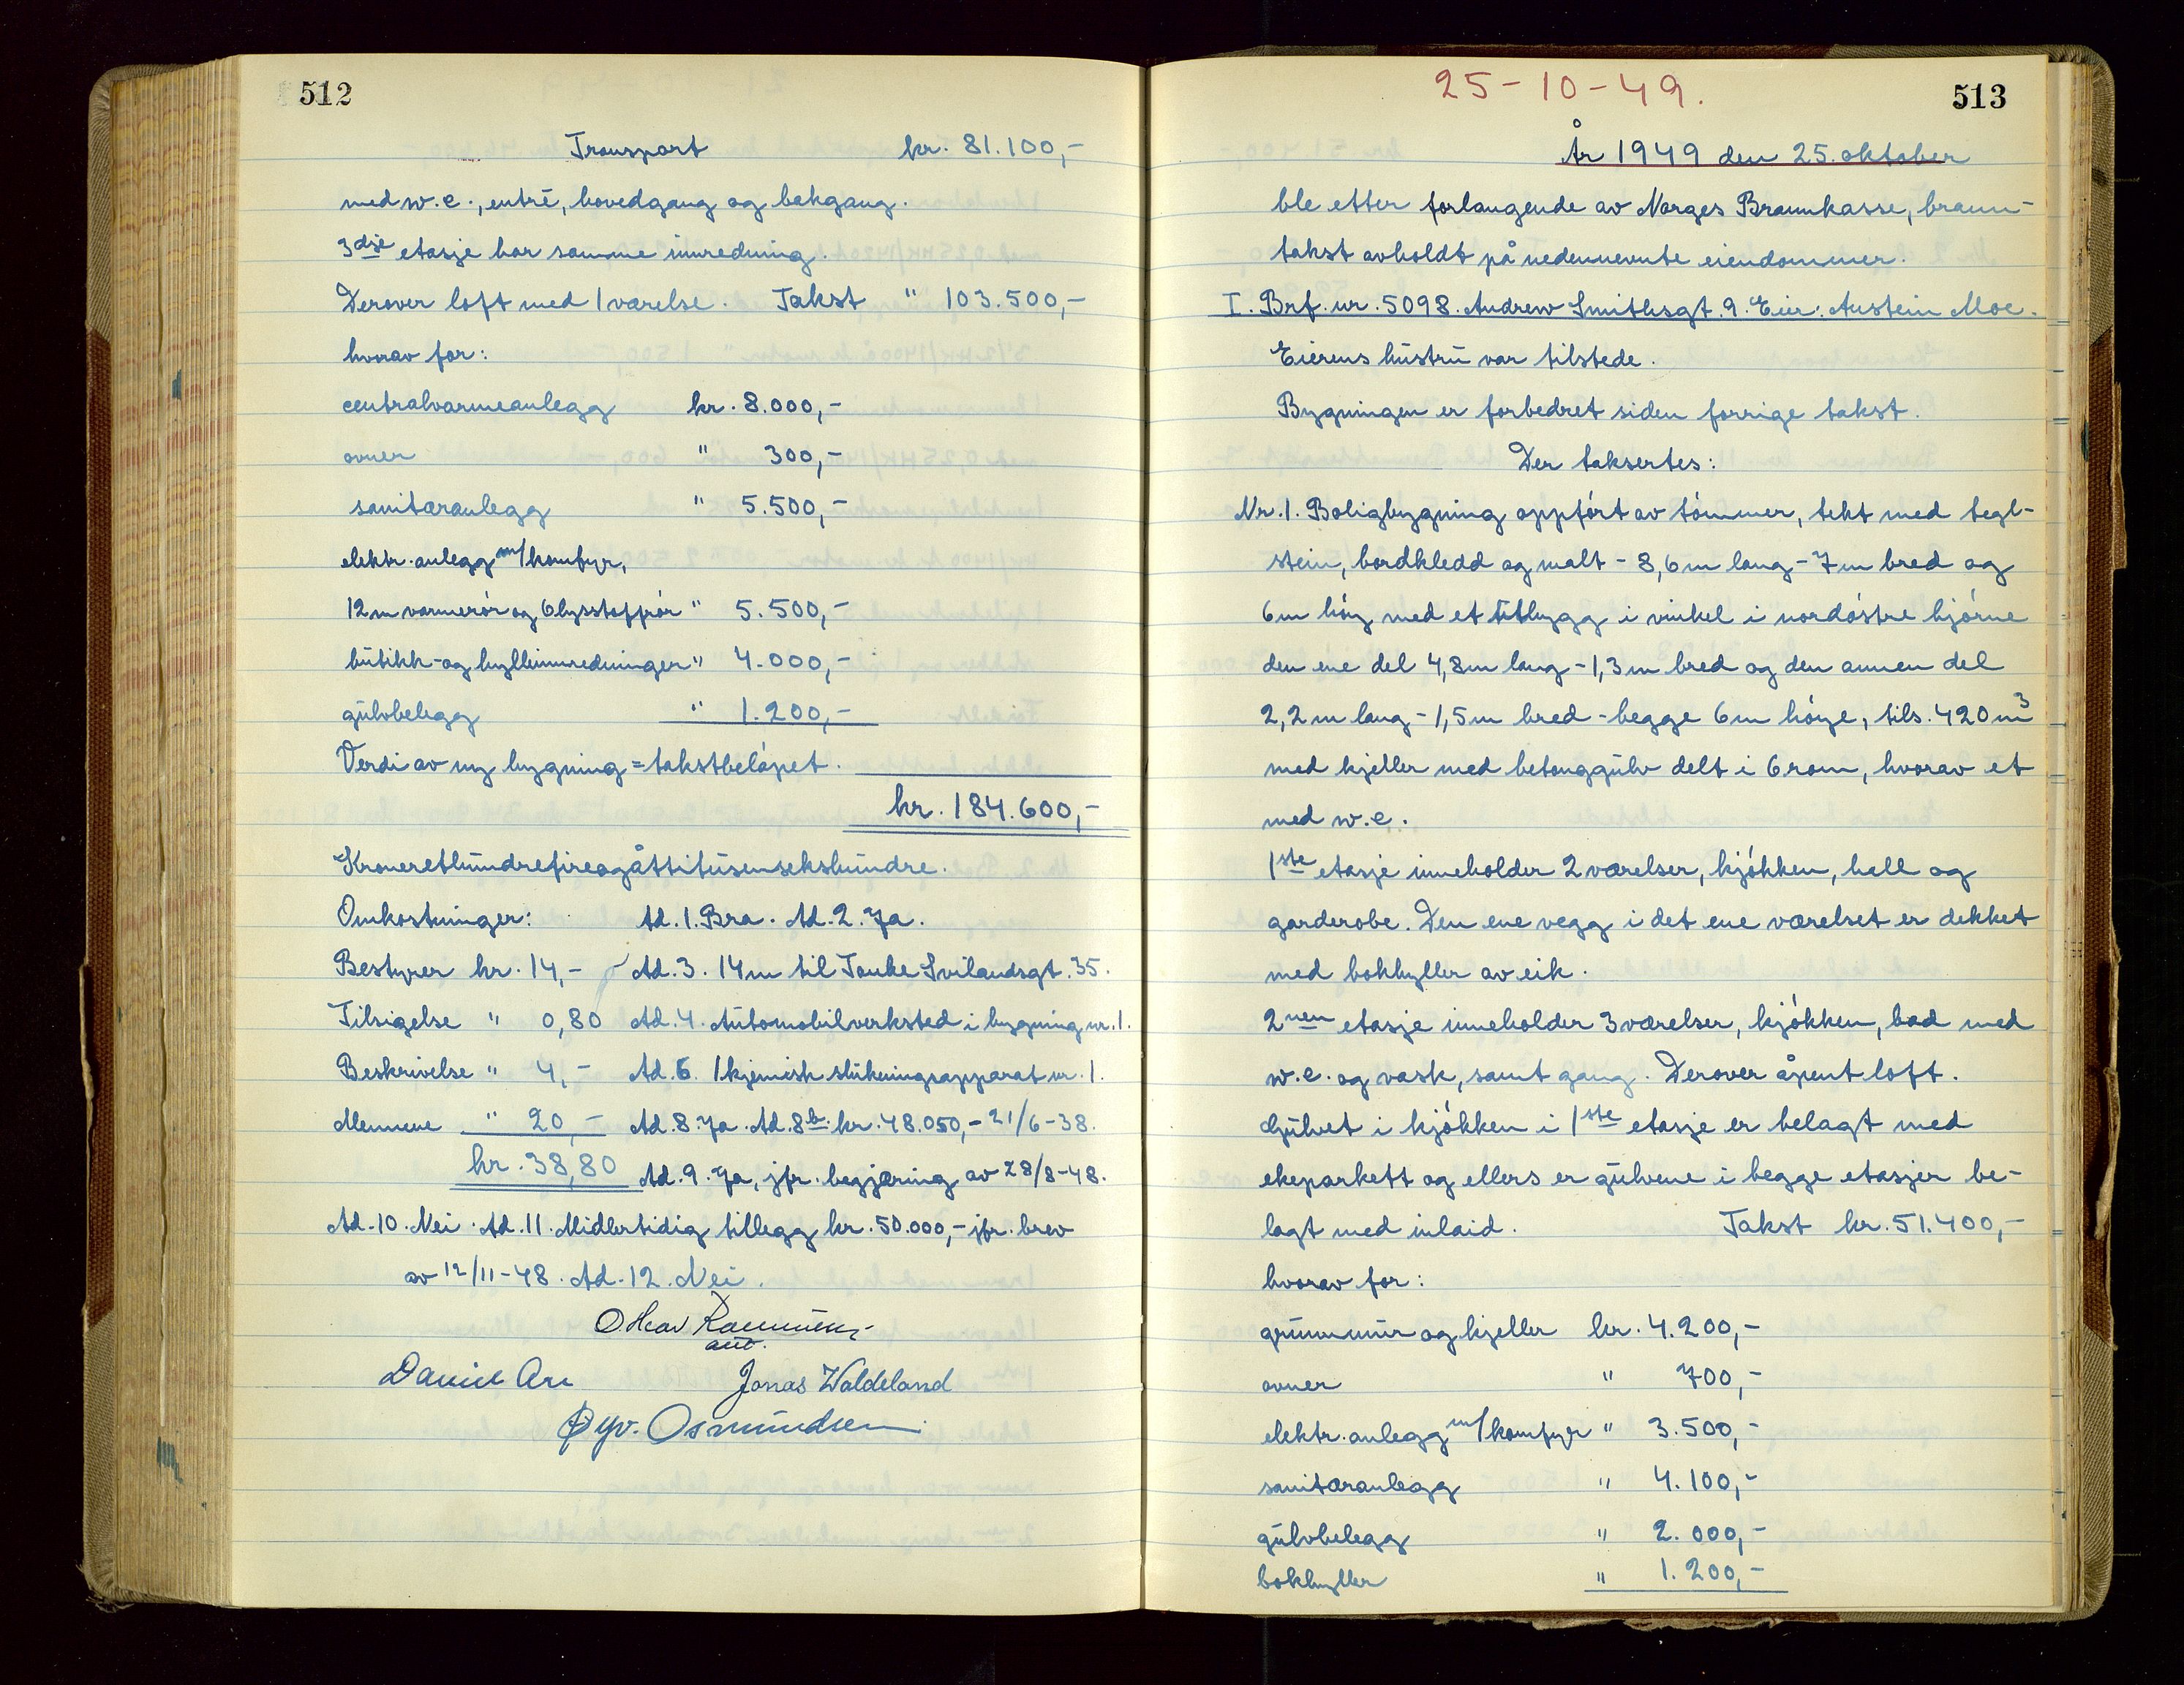 512
Transport kr. 81.100,-
med w.c., entré, hovedgang og bakgang.
3dje etasje har samme innredning.
Derover loft med 1 værelse. Takst " 103.500,-
hvorav for:
centralvarmeanlegg kr. 8.000,-
ovner " 300,-
sanitæranlegg " 5.500,-
elektr. anlegg m/komfyr,
12 m varmerör og 6 lysstoffrör " 5.500,-
butikk- og hylleinnredninger " 4.000,-
gulvbelegg " 1.200,-
Verdi av ny bygning = takstbelöpet.
kr. 184.600,-
Kroneretthundrefireogåttitusensekshundre.
Omkostninger: Ad. 1. Bra. Ad. 2. Ja.
Bestyrer kr. 14,- Ad. 3. 14 m til Tanke Svilandsgt. 35.
Tilsigelse " 0,80 Ad. 4. Automobilverksted i bygning nr. 1.
Beskrivelse " 4,- Ad. 6. 1 kjemisk slukningsapparat nr. 1.
Mennene " 20,- Ad. 8. Ja. Ad. 8b. kr. 48.050,- 21/6-38.
kr. 38,80 Ad. 9. Ja, jfr. begjæring av 28/8-48.
Ad. 10. Nei. Ad. 11. Midlertidig tillegg kr. 50.000,- jfr. brev
av 12/11-48. Ad. 12. Nei.
aut.
Jonas Waldeland
Øyv. Osmundsen
25-10-49.
513
År 1949 den 25. oktober
ble etter forlangende av Norges Brannkasse, brann-
takst avholdt på nedennevnte eiendommer.
I. Brf. nr. 5098. Andrew Smithsgt. 9. Eier: Austein Moe.
Eierens hustru var tilstede.
Bygningen er forbedret siden forrige takst.
Der taksertes:
Nr. 1. Boligbygning oppfört av tömmer, tekt med tegl-
stein, bordkledd og malt - 8,6 m lang - 7 m bred og
6 m höy med et utbygg i vinkel i nordöstre hjörne
den ene del 4,8 m lang - 1,3 m bred og den annen del
2,2 m lang - 1,5 m bred - begge 6 m höye, tils. 420 m3
med kjeller med betonggulv delt i 6 rom, hvorav et
med w.c.
1ste etasje inneholder 2 værelser, kjökken, hall og
garderobe. Den ene vegg i det ene værelset er dekket
med bokhyller av eik.
2nen etasje inneholder 3 værelser, kjökken, bad med
w.c. og vask, samt gang. Derover åpent loft.
Gulvet i kjökken i 1ste etasje er belagt med
ekeparkett og ellers er gulvene i begge etasjer be-
lagt med inlaid. Takst kr. 51.400,-
hvorav for:
grunnmur og kjeller kr. 4.200,-
ovner " 700,-
elektr. anlegg m/komfyr " 3.500,-
sanitæranlegg " 4.100,-
gulvbelegg " 2.000,-
bokhyller " 1.200,-